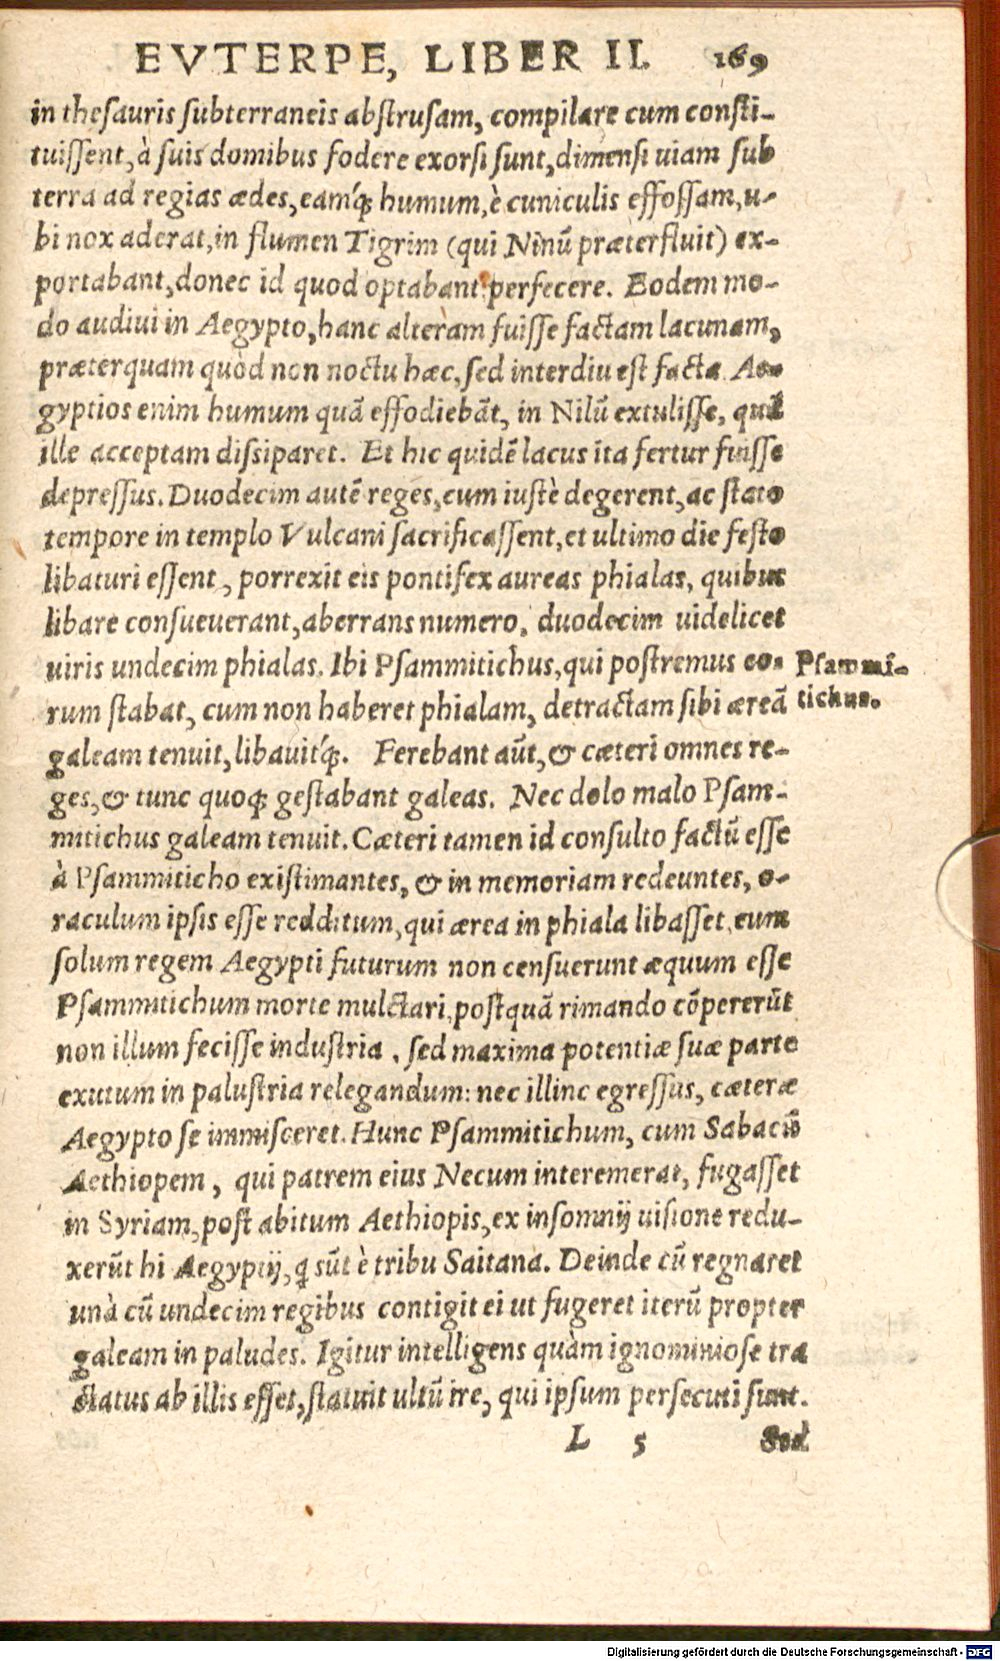 EVTERPE, LIBER II. 169
in thesauris subterraneis abstrusam, compilare cum consti-
tuissent, à suis domibus fodere exorsi sunt, dimensi uiam sub
terra ad regias ædes, eamq́; humum, è cuniculis effossam, u-
bi nox aderat, in flumen Tigrim (qui Ninũ præterfluit) ex-
portabant, donec id quod optabant perfecere. Eodem mo-
do audiui in Aegypto, hanc alteram fuisse factam lacunam,
præterquam quòd non noctu hæc, sed interdiu est facta. Ae-
gyptios enim humum quã effodiebãt, in Nilũ extulisse, quã
ille acceptam dissiparet. Et hic quidẽ lacus ita fertur fuisse
depressus. Duodecim autẽ reges, cum iustè degerent, ac stato
tempore in templo Vulcani sacrificassent, et ultimo die festo
libaturi essent, porrexit eis pontifex aureas phialas, quibus
libare consueuerant, aberrans numero, duodecim uidelicet
uiris undecim phialas. Ibi Psammitichus, qui postremus eo-
rum stabat, cum non haberet phialam, detractam sibi æreã
galeam tenuit, libauitq́;. Ferebant aũt, & cæteri omnes re-
ges, & tunc quoq; gestabant galeas. Nec dolo malo Psam-
mitichus galeam tenuit. Cæteri tamen id consulto factũ esse
à Psammiticho existimantes, & in memoriam redeuntes, o-
raculum ipsis esse redditum, qui ærea in phiala libasset, eum
solum regem Aegypti futurum non censuerunt æquum esse
Psammitichum morte mulctari, postquã rimando cõpererũt
non illum fecisse industria, sed maxima potentiæ suæ parte
exutum in palustria relegandum: nec illinc egressus, cæteræ
Aegypto se immisceret. Hunc Psammitichum, cum Sabacũ
Aethiopem, qui patrem eius Necum interemerat, fugasset
in Syriam, post abitum Aethiopis, ex insomnij uisione redu-
xerũt hi Aegyptij, q̃ sũt è tribu Saitana. Deinde cũ regnaret
unà cũ undecim regibus contigit ei ut fugeret iterũ propter
galeam in paludes. Igitur intelligens quàm ignominiose tra
ctatus ab illis esset, statuit ultũ ire, qui ipsum persecuti sunt.
L 5 Sed
Psammi-
tichus.
Digitalisierung gefördert durch die Deutsche Forschungsgemeinschaft - DFG